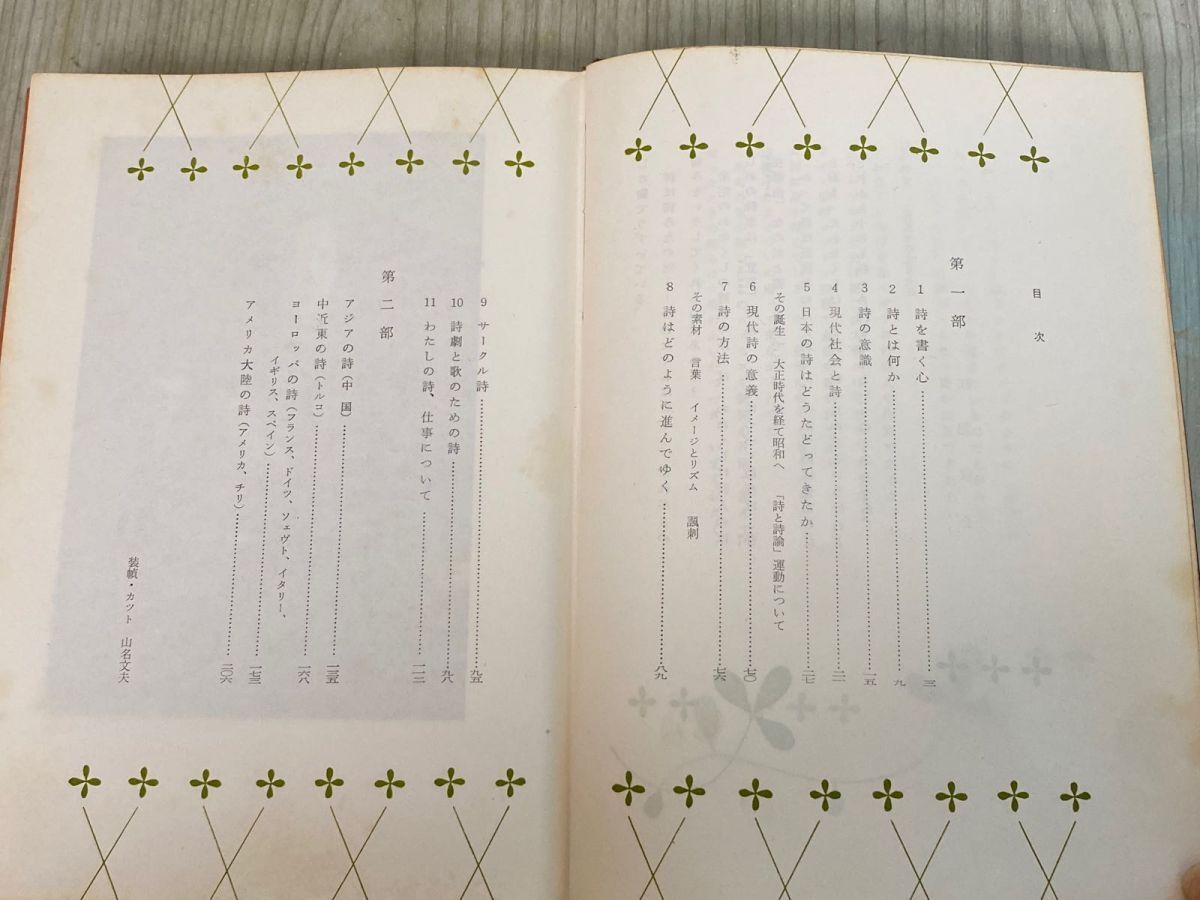 目次
第一部
1 詩を書く心……三
2 詩とは何か……九
3 詩の意識……一五
4 現代社会と詩……二一
5 日本の詩はどうたどってきたか……二七
その誕生 大正時代を経て昭和へ 「詩と詩論」運動について
6 現代詩の意義……七〇
7 詩の方法……七六
その素材 言葉 イメージとリズム 諷刺
8 詩はどのように進んでゆく……八九
9 サークル詩……九五
10 詩劇と歌のための詩……九八
11 わたしの詩、仕事について……一一二
第二部
アジアの詩(中国)……一三五
中近東の詩(トルコ)……一六八
ヨーロッパの詩(フランス、ドイツ、ソェヴト、イタリー、
イギリス、スペイン)……一七三
アメリカ大陸の詩(アメリカ、チリ)……二〇六
装幀・カツト 山名文夫